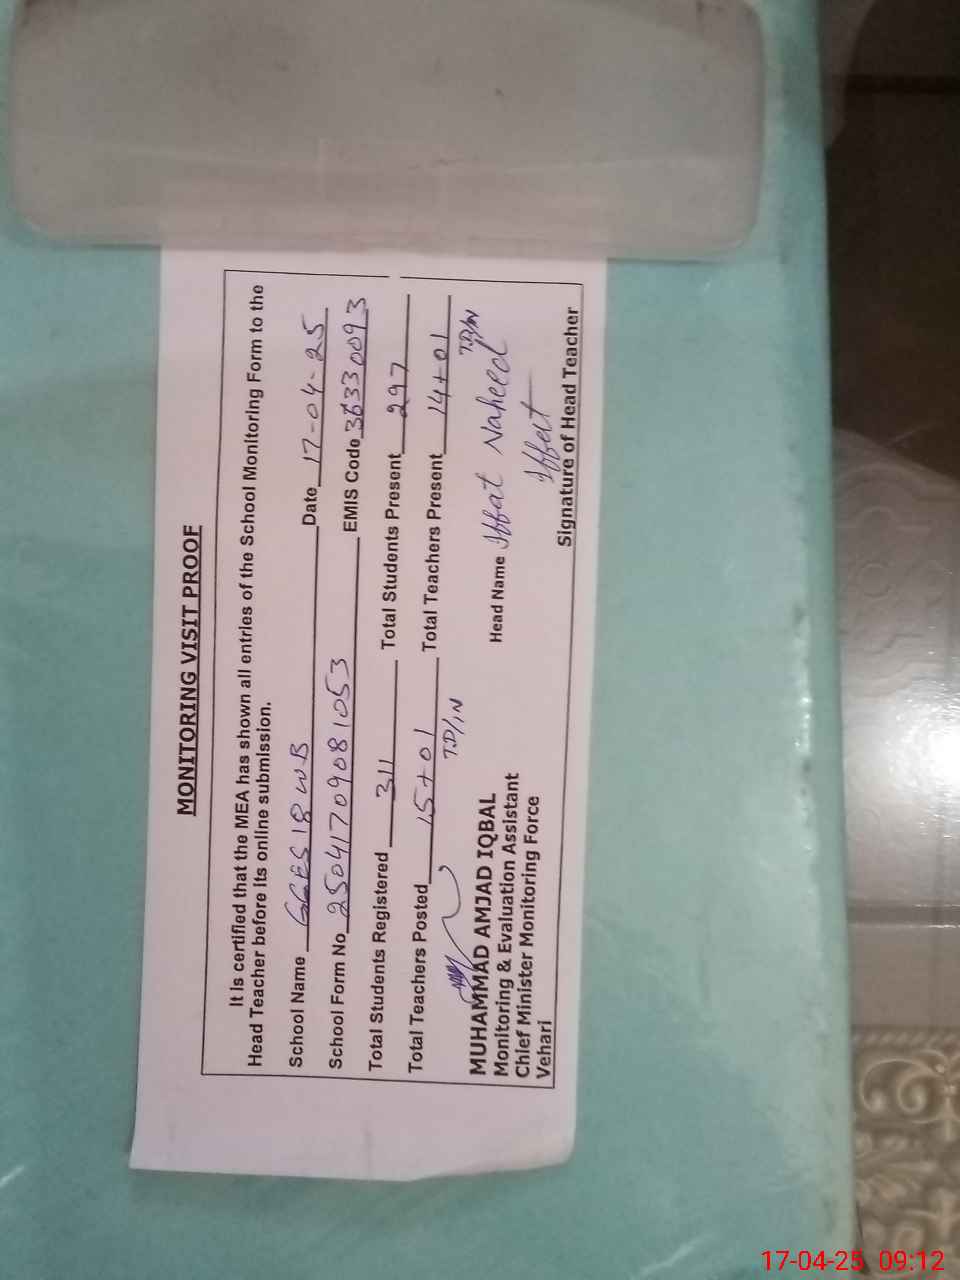 MONITORING VISIT PROOF
It is certified that the MEA has shown all entries of the School Monitoring Form to the
Head Teacher before its online submission.
School Name GGES 18 WB Date 17-04-25
School Form No 25041709081053 EMIS Code 36330093
Total Students Registered 311 Total Students Present 297
Total Teachers Posted 15+01 Total Teachers Present 14+01
T.D/IN T.D/IN
MUHAMMAD AMJAD IQBAL
Monitoring & Evaluation Assistant
Chief Minister Monitoring Force
Vehari
Head Name Iffat Naheed
Iffat
Signature of Head Teacher
17-04-25 09:12